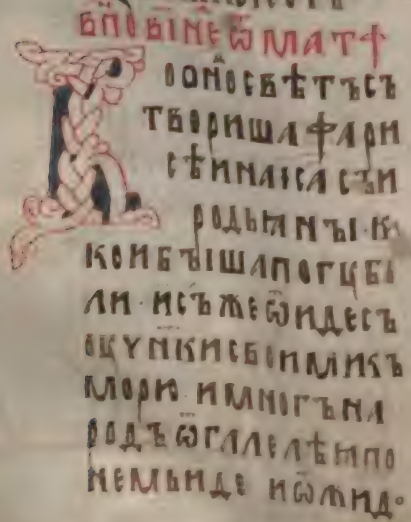 в҃п҃ о в҃ і н҃е ѿ мат ф
о о҃но свѣтъ съ
твориша фари
сѣи на ıса съ и
родьꙗнꙑ · ка
ко и бꙑша погꙋби
ли · ис҃ъ же ѿиде съ
оцун҃ки своими къ
морю · и многъ на
родъ ѿ галелѣꙗ по
немь иде и ѿ июд